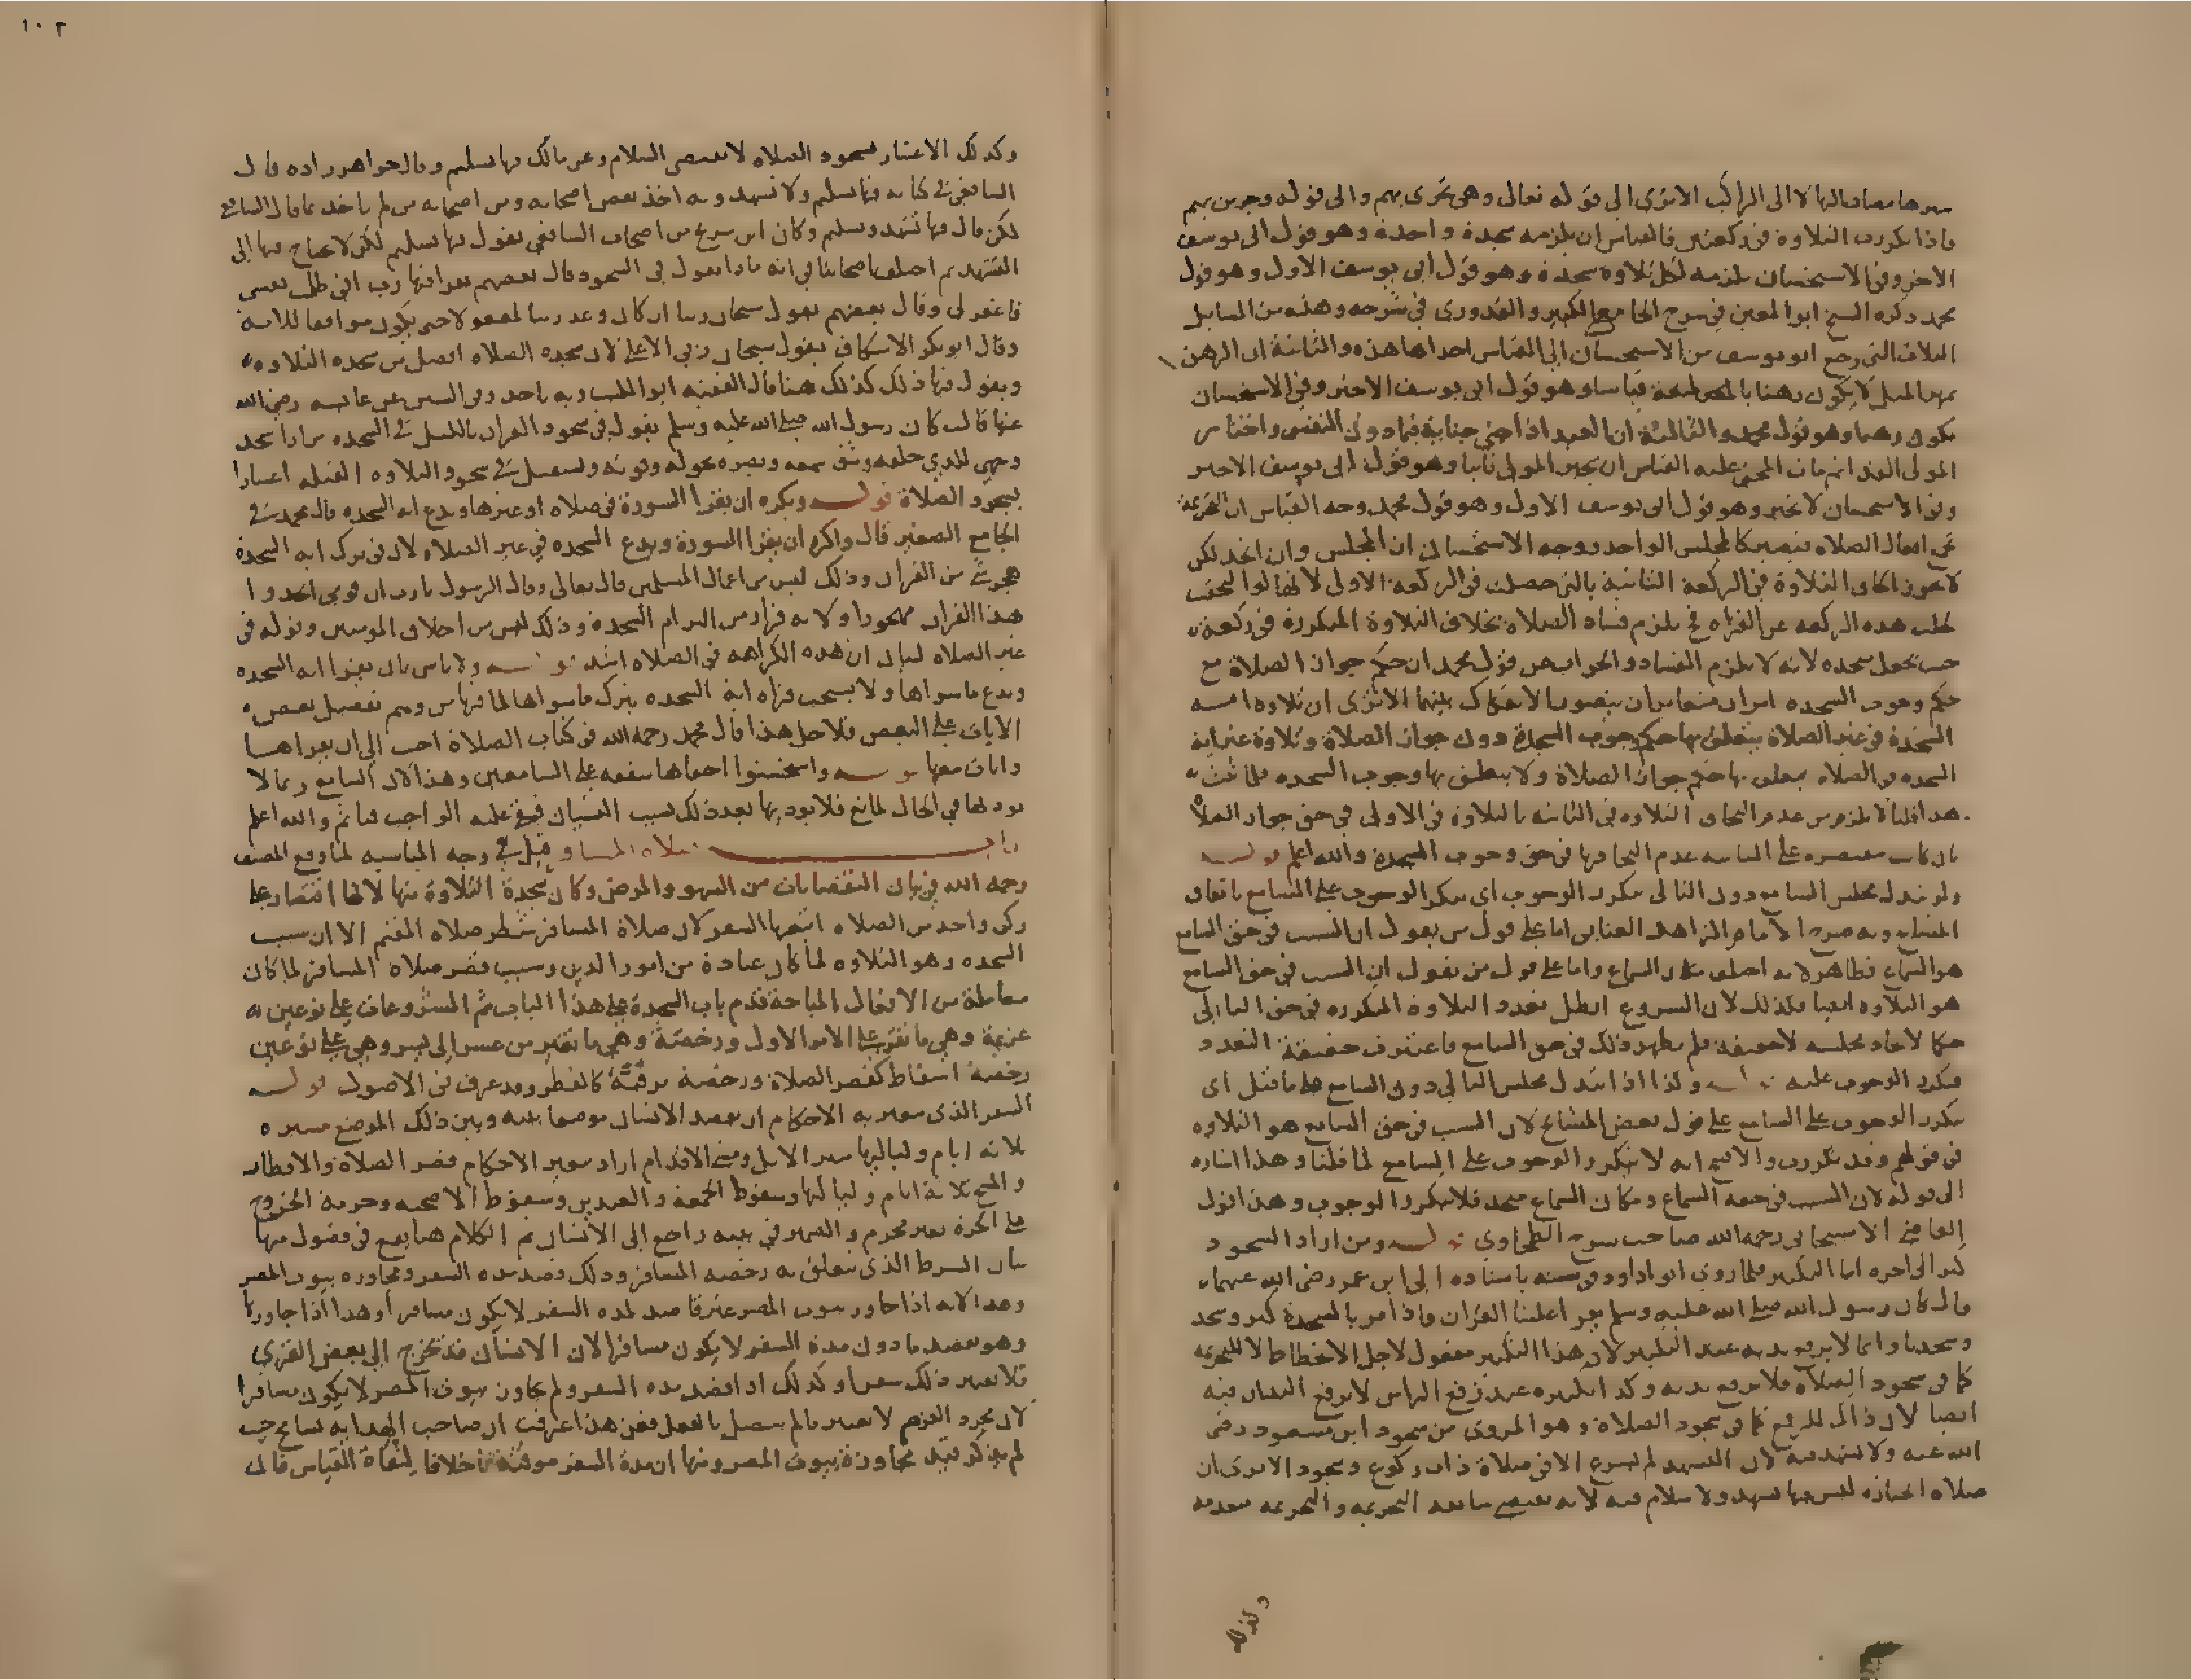 سيرها مضاف اليها لا الى الراكب الا ترى الى قوله تعالى وهى تجرى بهم والى قوله وجرين بهم
فاذا تكررت التلاوة فى ركعتين فالقياس ان يلزمه سجدة واحدة وهو قول ابى يوسف
الاخر وفى الاستحسان يلزمه لكل تلاوة سجدة وهو قول ابى يوسف الاول وهو قول
محمد ذكره الشيخ ابو المعين فى شرح الجامع الكبير والقدورى فى شرحه وهذه من المسايل
الثلاث التى رجع ابو يوسف من الاستحسان الى القياس احداها هذه والثانية ان الرهن
بمهر المثل لا يكون رهنا بالمتعة قياسا وهو قول ابى يوسف الاخير وفى الاستحسان
يكون رهنا وهو قول محمد والثالثة ان العبد اذا جنى جناية فيما دون النفس واختار
المولى الفدا ثم مات المجنى عليه القياس ان يخير المولى ثانيا وهو قول ابى يوسف الاخير
وفى الاستحسان لا يخير وهو قول ابى يوسف الاول وهو قول محمد وجه القياس ان التحريمة
افعال الصلاة فيصير كالمجلس الواحد ووجه الاستحسان ان المجلس وان اتحد لكن
لا يجوز الحاق التلاوة فى الركعة الثانية بالتى حصلت فى الركعة الاولى لانها لو التحقت
خلت هذه الركعة عن القراة فح يلزم فساد الصلاة بخلاف التلاوة المتكررة فى ركعة
حيث يجعل سجدة لانه لا يلزم الفساد والجواب عن قول محمد ان حكم جواز الصلاة مع
حكم وجوب السجدة امران متغايران يتصور الانفكاك بينهما الا ترى ان تلاوة اية
السجدة فى غير الصلاة يتعلق بها حكم وجوب السجدة دون جواز الصلاة وتلاوة غير اية
السجدة فى الصلاة يتعلق بها حكم جواز الصلاة ولا يتعلق بها وجوب السجدة فلما ثبت
هذا قلنا لا يلزم من عدم التحاق التلاوة فى الثانية بالتلاوة فى الاولى فى حق جواز الصلاة
عدم التحاقها فى حق وجوب السجدة والله اعلم قوله
ولو تبدل مجلس السامع دون التالى يتكرر الوجوب اى يتكرر الوجوب على السامع باتفاق
المشايخ وبه صرح الامام الزاهد العتابى اما على قول من يقول ان السبب فى حق السامع
هو السماع فظاهر لانه اختلف مكان السماع واما على قول من يقول ان السبب فى حق السامع
هو التلاوة ايضا فكذلك لان الشروع ابطل تعدد التلاوة المتكررة فى حق التالى
حكما لاتحاد مجلسه لا حقيقة فلم يظهر ذلك فى حق السامع فاعتبرت حقيقة التعدد
فيكرر الوجوب عليه قوله وكذا اذا تبدل مجلس التالى دون السامع على ما قيل اى
يتكرر الوجوب على السامع على قول بعض المشايخ لان السبب فى حق السامع هو التلاوة
فى قولهم وقد تكررت والاصح انه لا يتكرر الوجوب على السامع لما قلنا وهذا اشارة
الى قوله لان السبب فى حقه السماع ومكان السماع متحد فلا يتكرر الوجوب وهذا قول
القاضى الاسبيجابى رحمه الله صاحب شرح الطحاوى قوله ومن اراد السجود
كبر الى اخره اما التكبير فلما روى ابو داود فى سننه باسناده الى ابن عمر رضى الله عنهما
قال كان رسول الله صلى الله عليه وسلم يقرا علينا القران فاذا مر بالسجدة كبر وسجد
وسجدنا وانما لا يرفع يديه عند التكبير لان هذا التكبير مفعول لاجل الانحطاط لا للتحريمة
كما فى سجود الصلاة فلا يرفع يديه وكذا التكبيرة عند رفع الراس لا يرفع اليدان فيه
ايضا لان ذاك للرفع كما فى سجود الصلاة وهو المروى من سجود ابن مسعود رضى
الله عنه ولا تشهد فيه لان التشهد لم يشرع الا فى صلاة ذات ركوع وسجود الا ترى ان
صلاة الجنازة ليس فيها تشهد ولا سلام فيه لانه يقتضى سابقة التحريمة والتحريمة منعدمة
وكذلك
١٠٢
وكذلك الاعتبار بسجود الصلاة لا يقتضى السلام وعن مالك فيها تسليم وقال خواهر زاده قال
الشافعى فى كتابه فيها تسليم ولا تشهد وبه اخذ بعض اصحابه ومن اصحابه من لم ياخذ بما قال الشافعى
لكن قال فيها تشهد وتسليم وكان ابن سريج من اصحاب الشافعى يقول فيها تسليم لكن لا يحتاج فيها الى
التشهد ثم اختلف اصحابنا فى انه ماذا يقول فى السجود قال بعضهم يقرا فيها رب انى ظلمت نفسى
فاغفر لى وقال بعضهم يقول سبحان ربنا ان كان وعد ربنا لمفعولا حتى يكون موافقا للاية
وقال ابو بكر الاسكاف يقول سبحان ربى الاعلى لان سجدة الصلاة افضل من سجدة التلاوة
ويقول فيها ذلك كذلك هنا قال الفقيه ابو الليث وبه ناخذ وفى السنن عن عائشة رضى الله
عنها قالت كان رسول الله صلى الله عليه وسلم يقول فى سجود القران بالليل فى السجدة مرارا سجد
وجهى للذى خلقه وشق سمعه وبصره بحوله وقوته ويستقبل فى سجود التلاوة القبلة اعتبارا
بسجود الصلاة قوله ويكره ان يقرا السورة فى صلاة او غيرها ويدع اية السجدة قال محمد فى
الجامع الصغير قال واكره ان يقرا السورة ويدع السجدة فى غير الصلاة لان فى ترك اية السجدة
هجر شى من القران وذلك ليس من اعمال المسلمين قال تعالى وقال الرسول يا رب ان قومى اتخذوا
هذا القران مهجورا ولانه فرار من التزام السجدة وذلك ليس من اخلاق المومنين وقوله فى
غير الصلاة لبيان ان هذه الكراهة فى الصلاة اشد قوله ولا باس بان يقرا اية السجدة
ويدع ما سواها ولا يستحب قراة اية السجدة بترك ما سواها لما فيها من وهم تفضيل بعض
الايات على البعض فلاجل هذا قال محمد رحمه الله فى كتاب الصلاة احب الى ان يقراها
وايات معها قوله واستحسنوا اخفاها شفقة على السامعين وهذا لان السامع ربما لا
يودها فى الحال لمانع فلا يوديها بعد ذلك بسبب النسيان فيبقى عليه الواجب فياثم والله اعلم
باب صلاة المسافر قيل فى وجه المناسبة لما وقع المصنف
رحمه الله فى بيان النقصانات من السهو والمرض وكان سجدة التلاوة منها لانها اقتصار على
ركن واحد من الصلاة اتبعها السفر لان صلاة المسافر شطر صلاة المقيم الا ان سبب
السجدة وهو التلاوة لما كان عبادة من امور الدين وسبب قصر صلاة المسافر لما كان
معاملة من الافعال المباحة قدم باب السجدة على هذا الباب ثم المشروعات على نوعين
عزيمة وهى ما تقرر على الامر الاول ورخصة وهى ما تغير من عسر الى يسر وهى على نوعين
رخصة اسقاط كقصر الصلاة ورخصة ترفيه كالفطر وقد عرف فى الاصول قوله
السفر الذى يتغير به الاحكام ان يقصد الانسان موضعا بينه وبين ذلك الموضع مسيرة
ثلاثة ايام ولياليها سير الابل ومشى الاقدام اراد بتغير الاحكام قصر الصلاة والافطار
والمسح ثلاثة ايام ولياليها وسقوط الجمعة والعيدين وسقوط الاضحية وحرمة الخروج
على الحرة بغير محرم والضمير فى بينه راجع الى الانسان ثم الكلام هنا يقع فى فصول منها
بيان الشرط الذى يتعلق به رخصة المسافر وذلك قصد مدة السفر ومجاوزة بيوت المصر
وهذا لانه اذا جاوز بيوت المصر غير قاصد لمدة السفر لا يكون مسافرا وهذا اذا جاوزها
وهو يقصد ما دون مدة السفر لا يكون مسافرا لان الانسان قد يخرج الى بعض القرى
فلا يعتبر ذلك سفرا وكذلك اذا قصد مدة السفر ولم يجاوز بيوت المصر لا يكون مسافرا
لان مجرد العزم لا يعتبر ما لم يتصل بالفعل فعن هذا عرفت ان صاحب الهداية تسامح حيث
لم يذكر قيد مجاوزة بيوت المصر ومنها ان مدة السفر موقتة خلافا لنفاة القياس قال